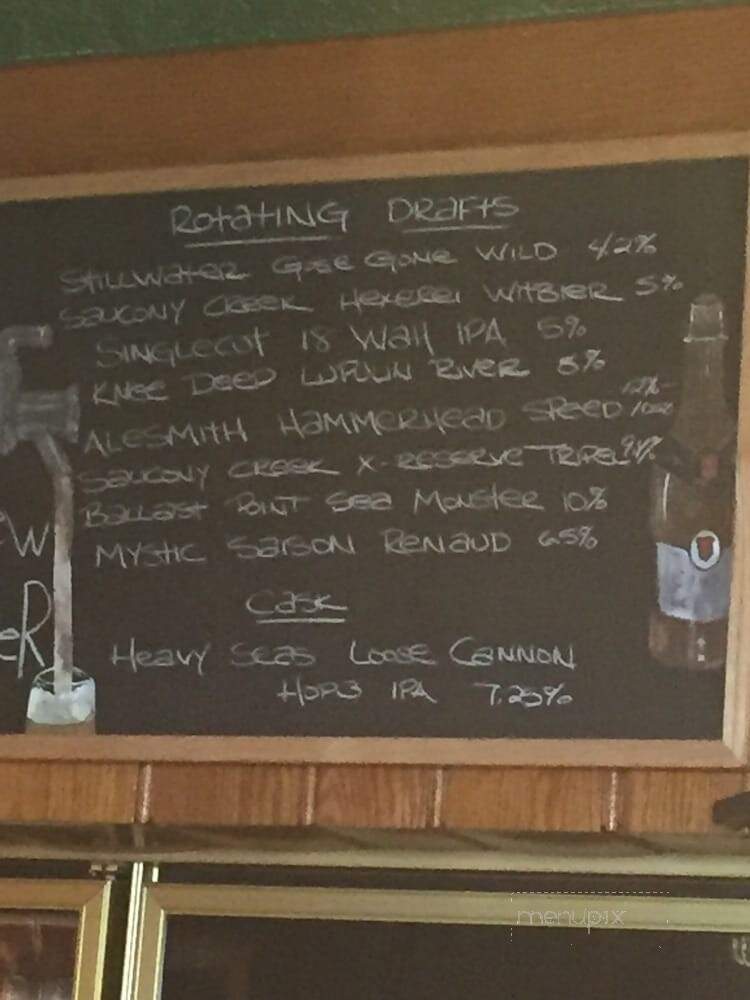 Rotating Drafts
Stillwater Gose Gone Wild 4.2%
Saucony Creek Hexerei Witbier 5%
Singlecut 18 Watt IPA 5%
Knee Deep Lupulin River 8%
Alesmith Hammerhead Speed 12%
Saucony Creek X-Reserve Tripel
Ballast Point Sea Monster 10%
Mystic Saison Renaud 6.5%
Cask
Heavy Seas Loose Cannon
Hop3 IPA 7.25%
ew
er
menupix